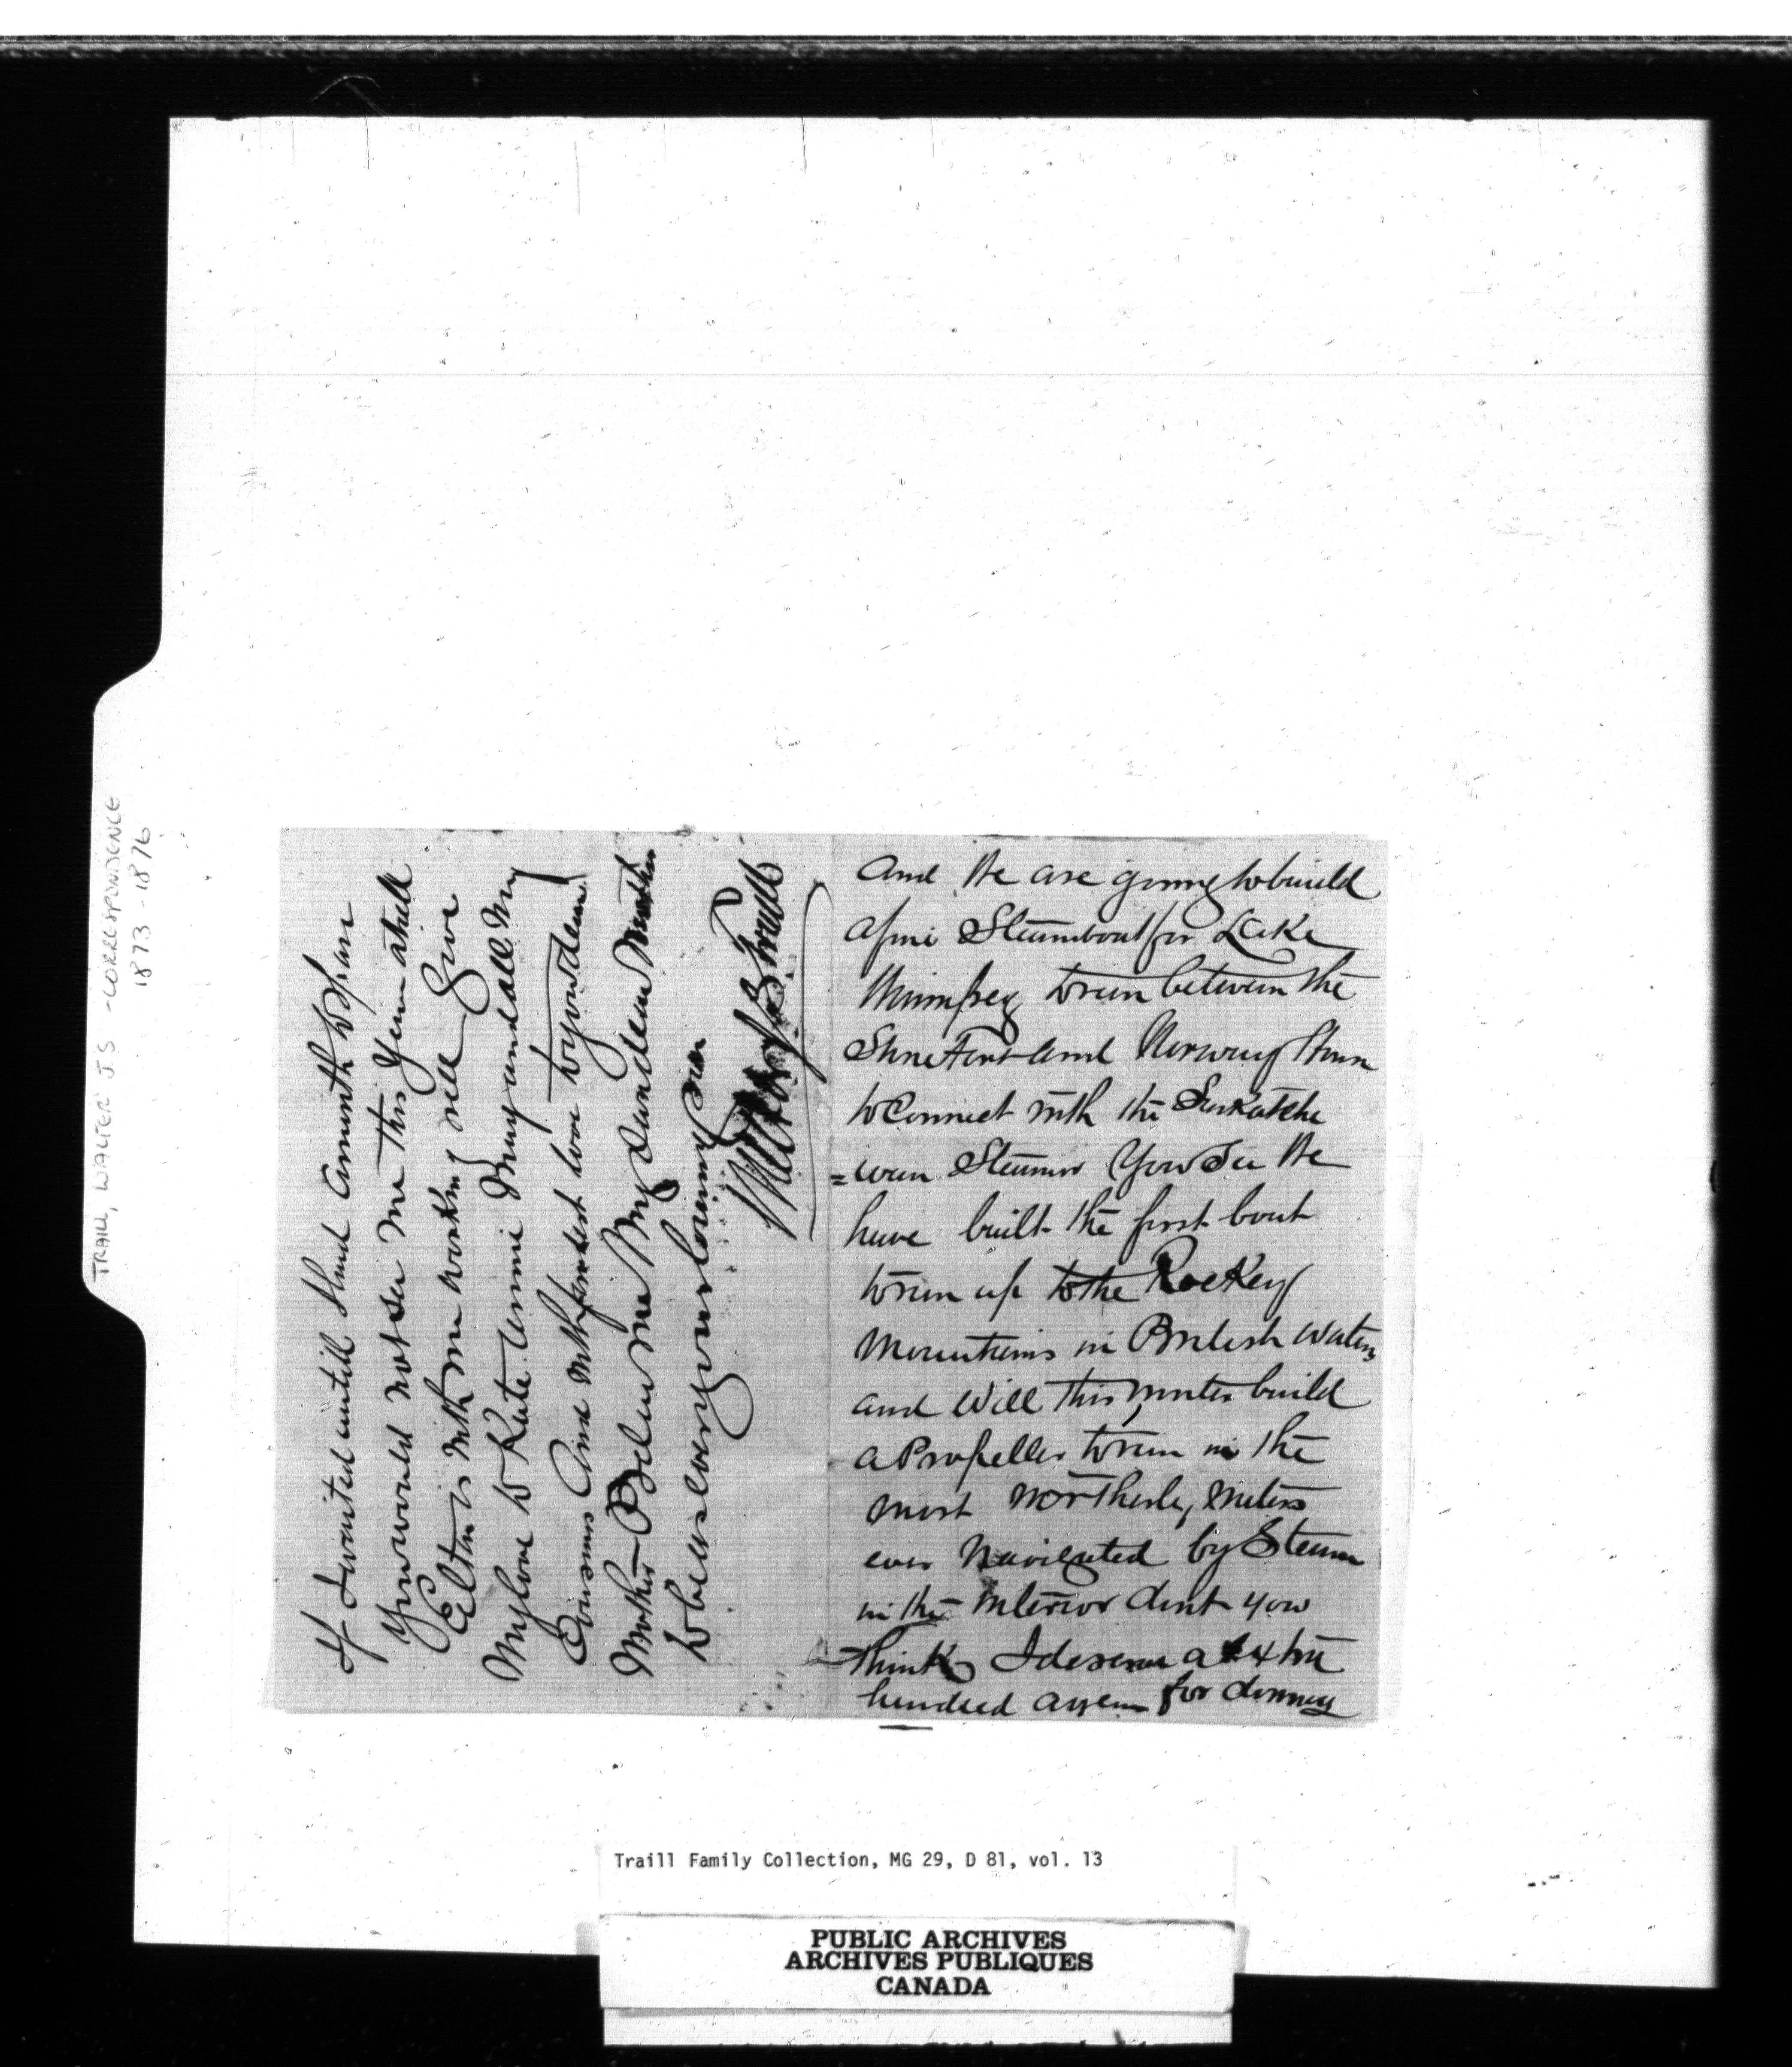 and We are going to build
a fine Steamboat for Lake
Winnipeg to run between the
Stone Fort and Norway House
to Connect with the Saskatche
=wan Steamer You See We
have built the first boat
to run up to the Rockey
Mountains in British Waters
and Will this winter build
a Propeller to run in the
most Northerly Waters
ever Navigated by Steam
in the interior dont you
think I deserve a extra
hundred a year for
If I waited untill I had a month to spare
You would not see me this Year at all
Elton is with me working well Give
My love to Kate Annie Mary and all My
Cousins And with fondest love to yourdear
Mother Believe me My dear dear Mother
to be as ever your loving Son
Walter Traill
TRAILL, WALTER J.S. - CORRESPONDENCE
1873 - 1876
Traill Family Collection, MG 29, D 81, vol. 13
PUBLIC ARCHIVES
ARCHIVES PUBLIQUES
CANADA